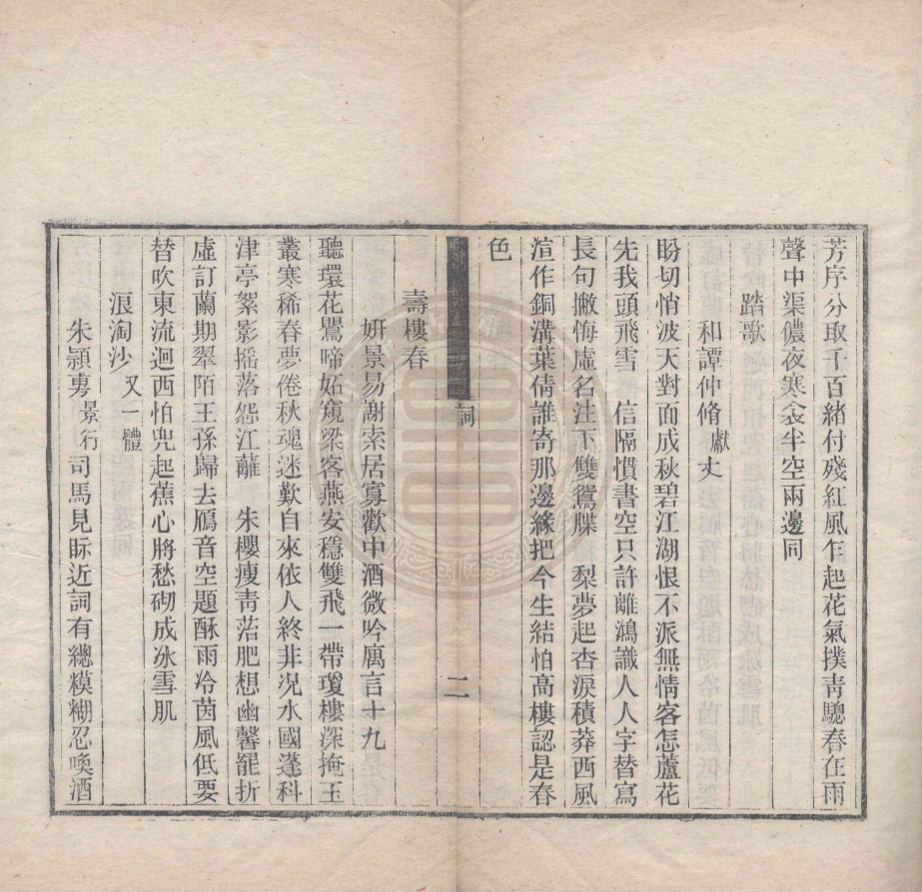 芳序分取千百緒付殘紅風乍起花氣撲靑驄春在雨
聲中渠儂夜寒衾半空兩邊同
踏歌
和譚仲脩獻丈
盼切悄波天對面成秋碧江湖恨不派無情客怎蘆花
先我頭飛雪　信隔慣書空只許離鴻識人人字替寫
長句撇悔虛名注下雙鴛牒　梨夢起杏淚積莽西風
渲作銅溝葉倩誰寄那邊緣把今生結怕高樓認是春
色
詞
二
壽樓春
妍景易謝索居寡歡中酒微吟厲言十九
聽環花鸎啼妬窺梁客燕安穩雙飛一帶瓊樓深掩玉
叢寒稀春夢倦秋魂迷歎自來依人終非况水國蓬科
津亭絮影摇落怨江蘺　朱櫻瘦靑萿肥想幽馨罷折
虛訂蘭期翠陌王孫歸去鴈音空題酥雨冷茵風低要
替吹東流迴西怕兜起蕉心將愁砌成冰雪肌
浪淘沙又一體
朱潁叀景行司馬見眎近詞有總模糊忍喚酒